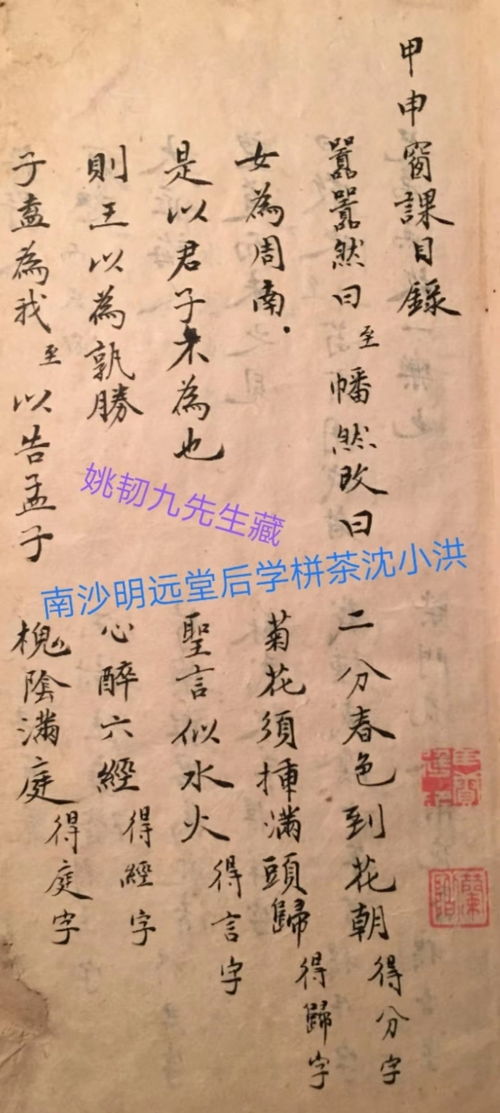 甲申窗課目錄
囂囂然曰至幡然改曰 二分春色到花朝得分字
女為周南 菊花須插滿頭歸得歸字
是以君子未為也 聖言似水火得言字
則王以為孰勝 心醉六經得經字
子盍為我至以告孟子 槐陰滿庭得庭字
姚韧九先生藏
南沙明远堂后学栟茶沈小洪